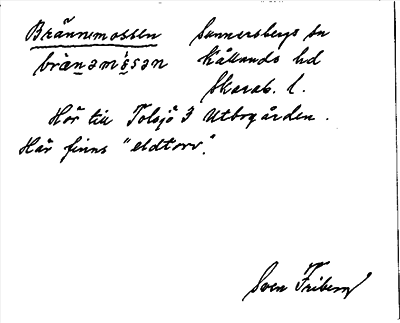 Brännemossen Sunnersbergs sn
brænəmɵ̀sən Kållands hd
Skarab. l.
Hör till Tolsjö 3 Utbogården.
Här finns "eldtorv".
Sven Friberg